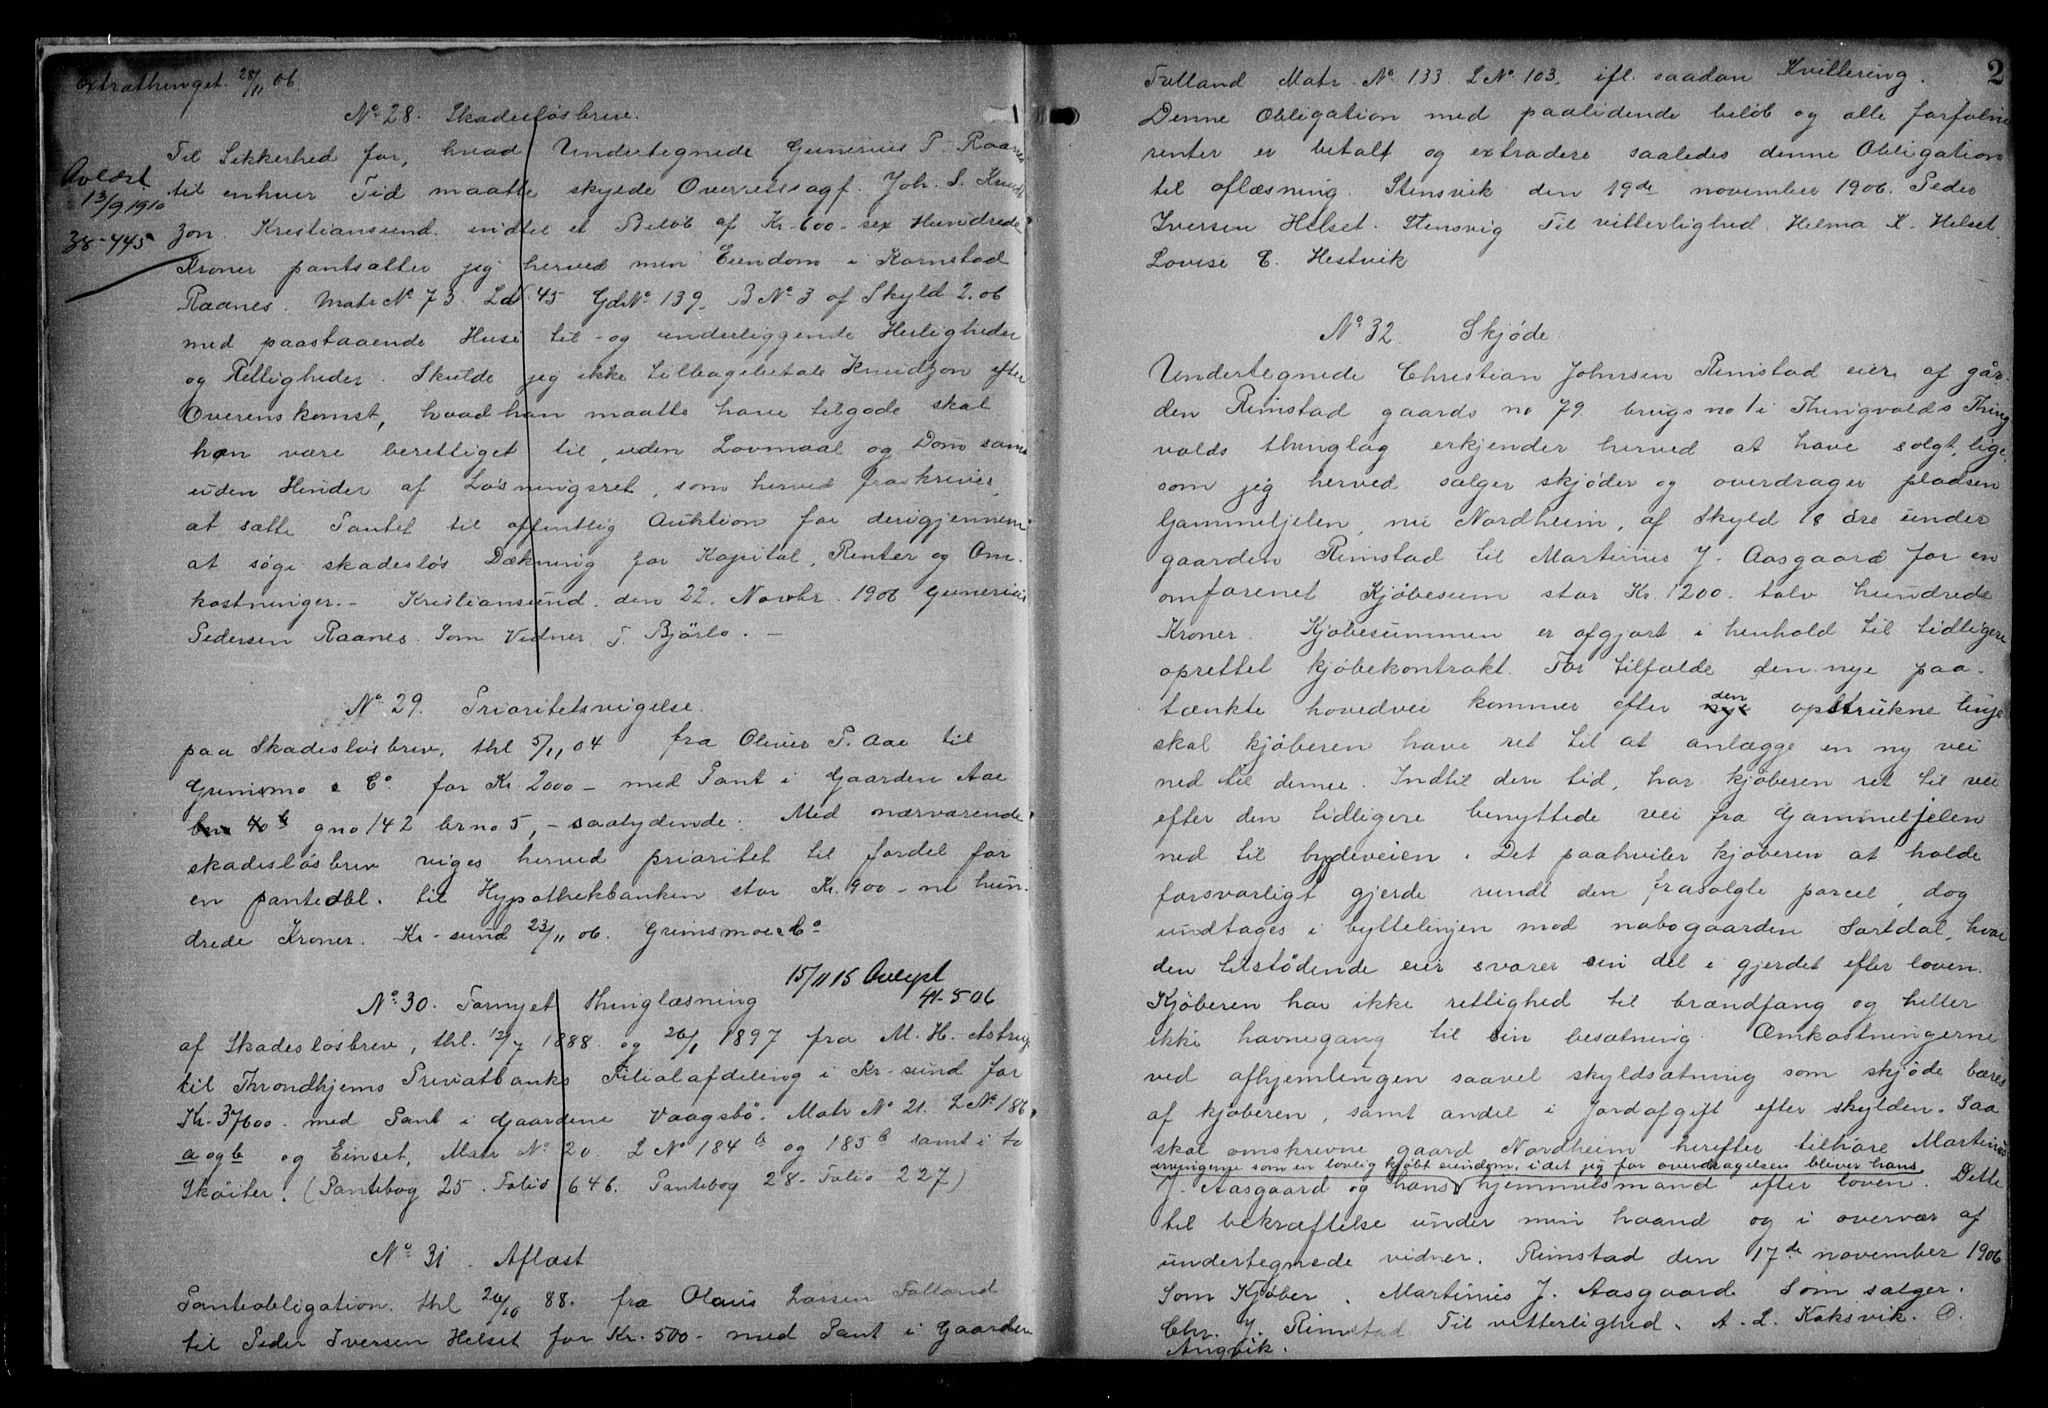 Extrathinget 28/11 06.
No 28. Skadesløsbrev.
Til Sikkerhed for, hvad Undertegnede Gunerius P. Raanes
til enhver Tid maatte skylde Overretssagf. Joh. S. Knudt
zon. Kristiansund. indtil et Beløb af Kr. 600 - sex Hundrede
Kroner pantsætter jeg herved min Eiendom i Kornstad
Raanes. Matr No 73. Ld 45 Gd No 139. B No 3 af Skyld 2.06
med paastaaende Huse til- og underliggende Herligheder
og Rettigheder. Skulde jeg ikke tilbagebetale Knudtzon efter
Overenskomst, hvad han maatte have tilgode skal
han være berettiget til, uden Lovmaal og Dom samt
uden Hinder af Løsningsret, som herved fraskrives,
at sætte Pantet til offentlig Auktion for derigjennem
at søge skadesløs Dækning for Kapital, Renter og Om-
kostninger. - Kristiansund. den 22. Novbr. 1906 Gunerius
Pedersen Raanes. Som Vidner T. Bjørlo. -
Avlæst
13/9 1910
38-445
No 29. Prioritetsvigelse.
paa Skadesløsbrev, thl 5/11 04 fra Oliver P. Aae til
Grimsmo & Co. for Kr. 2000 - med Pant i Gaarden Aae
bno 40 b gno 142 brno 5, - saalydende: Med nærværende
skadesløsbrev viges herved prioritet til fordel for
en panteobl. til Hypothekbanken stor Kr. 900 - ni hun-
drede Kroner. Kr-sund 23/11 06. Grimsmo & Co
15/11 15 Avlyst
41-506
No 30. Fornyet Thinglæsning
af Skadesløsbrev, thl. 12/7 1888 og 26/1 1897 fra M. H. Astrup
til Throndhjems Privatbanks Filialafdeling i Kr-sund for
Kr. 37600 - med Pant i Gaardene Vaagsbø. Matr No 21. L No 186
a og b og Einset, Matr No 20 L No 184 b og 185 b samt i to
Skøiter. (Pantebog 25. Folio 646. Pantebog 28 - Folio 227)
No 31. Aflæst
Panteobligation. thl 20/10 88. fra Olaus Larsen Falland
til Peder Iversen Helset for Kr. 500 - med Pant i Gaarden
2
Falland Matr. No 133 L No 103, ifl. saadan Kvittering.
Denne Obligation med paalidende beløb og alle forfaldne
renter er betalt og extradere saaledes denne Obligation
til aflæsning. Stensvik den 19de november 1906. Peder
Iversen Helset. Stensvig Til vitterlighed. Helma K. Helset.
Lovise E. Hestvik
No 32. Skjøde.
Undertegnede Christian Johnsen Rimstad eier af går-
den Rimstad gaards no 79 brugs no 1 i Thingvolds Thing
volds thinglag erkjender herved at have solgt, lige-
som jeg herved sælger skjøder og overdrager pladsen
Gammeljelen, nu Nordheim, af Skyld 18 øre under
gaarden Rimstad til Martinius J. Aasgaard for en
omforenet Kjøbesum stor Kr. 1200. tolv hundrede
Kroner. Kjøbesummen er afgjort i henhold til tidligere
oprettet kjøbekontrakt. For tilfælde den nye paa-
tænkte hovedvei kommer efter den opstrukne linje
skal kjøberen have ret til at anlægge en ny vei
ned til denne. Indtil den tid, har kjøberen ret til vei
efter den tidligere benyttede vei fra Gammeljelen
ned til bygdeveien. Det paahviler kjøberen at holde
forsvarligt gjerde rundt den frasolgte parcel, dog
undtages i byttelinjen mod nabogaarden Sørtdal, hvor
den tilstødende eier svarer sin del i gjerdet efter loven.
Kjøberen har ikke rettighed til brændfang og heller
ikke havnegang til sin besætning. Omkostningerne
ved afhjemlingen saavel skyldsætning som skjøde bæres
af kjøberen, samt andel i Jordafgift efter skylden. Saa
skal omskrevne gaard Nordheim herefter tilhøre Martinius
arvingerne som en lovlig kjøbt eiendom, i det jeg for overdragelsen bliver hans
J. Aasgaard og hans hjemmelsmand efter loven. Dette
til bekræftelse under min haand og i overvær af
undertegnede vidner. Rimstad den 17de november 1906
Som Kjøber. Martinius J. Aasgaard. Som sælger.
Chr. J. Rimstad Til vitterlighed. A. L. Koksvik. O.
Angvik.